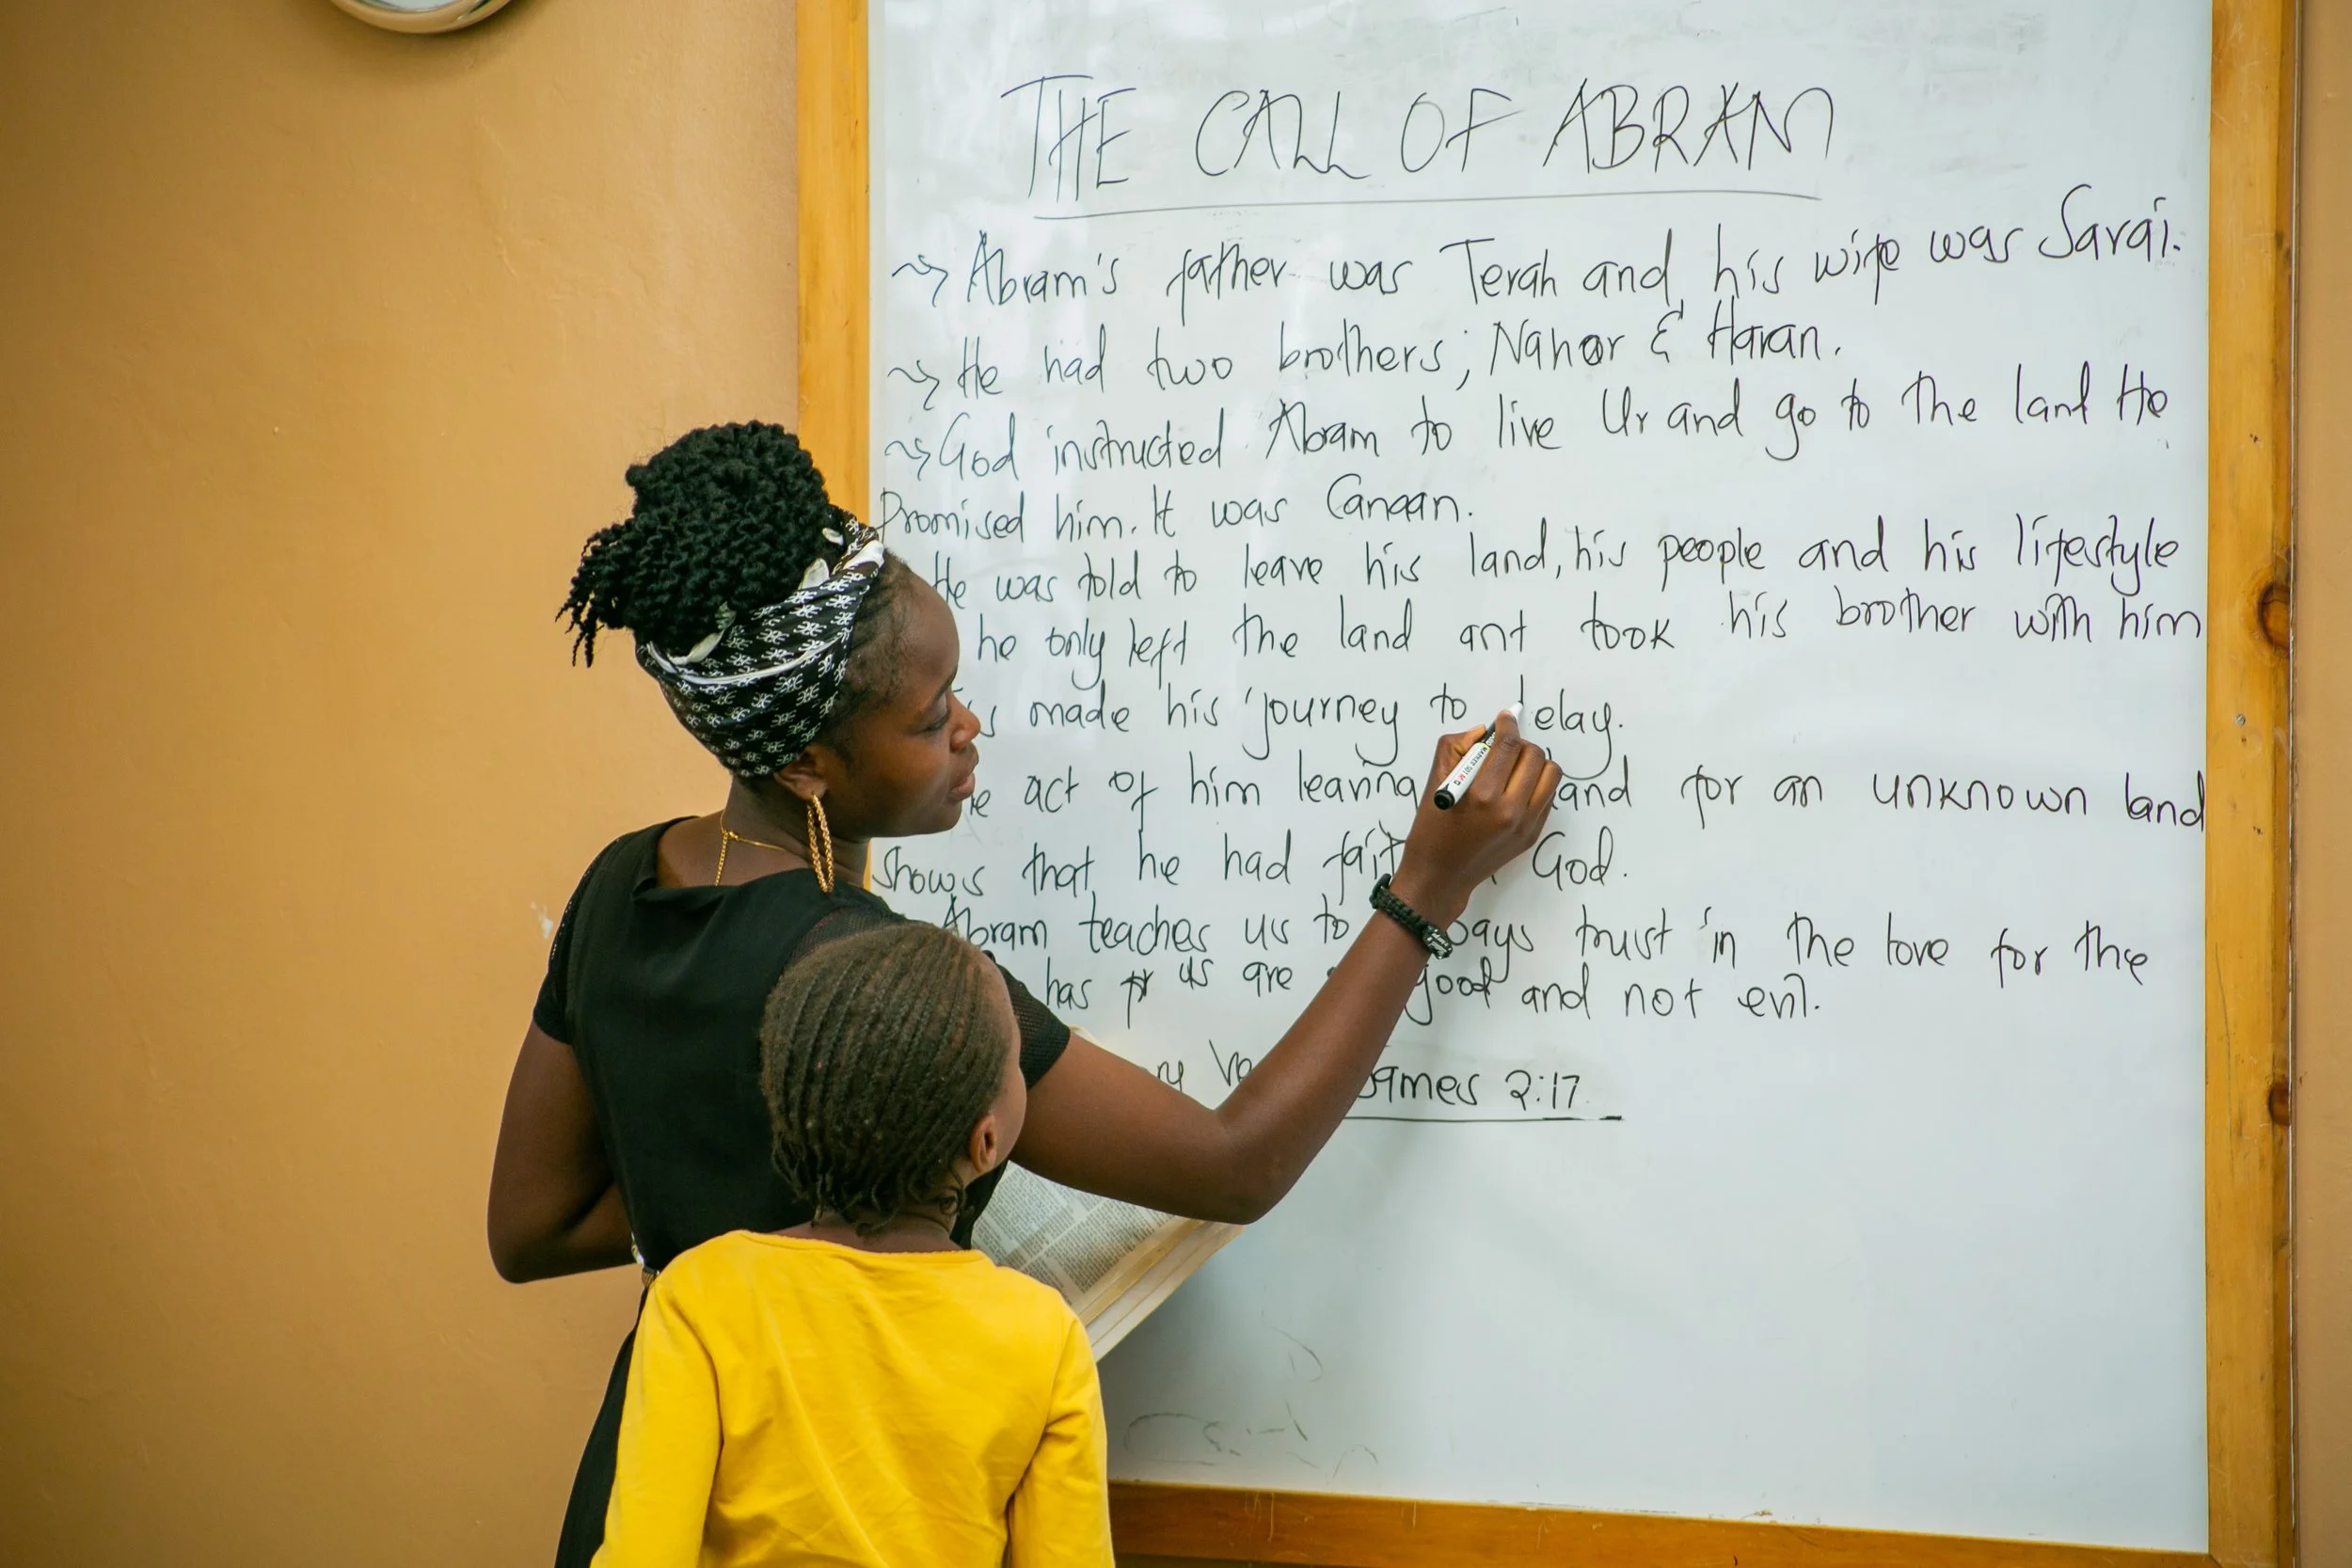 THE CALL OF ABRAM
~> Abram's father was Terah and his wife was Sarai.
~> He had two brothers; Nahor & Haran.
~> God instructed Abram to live Ur and go to the land He
Promised him. It was Canaan.
He was told to leave his land, his people and his lifestyle
he only left the land ant took his brother with him
made his journey to delay.
act of him leaving land for an unknown land
shows that he had God.
Abram teaches us to trust in the love for the
has for us are good and not evil.
James 2:17